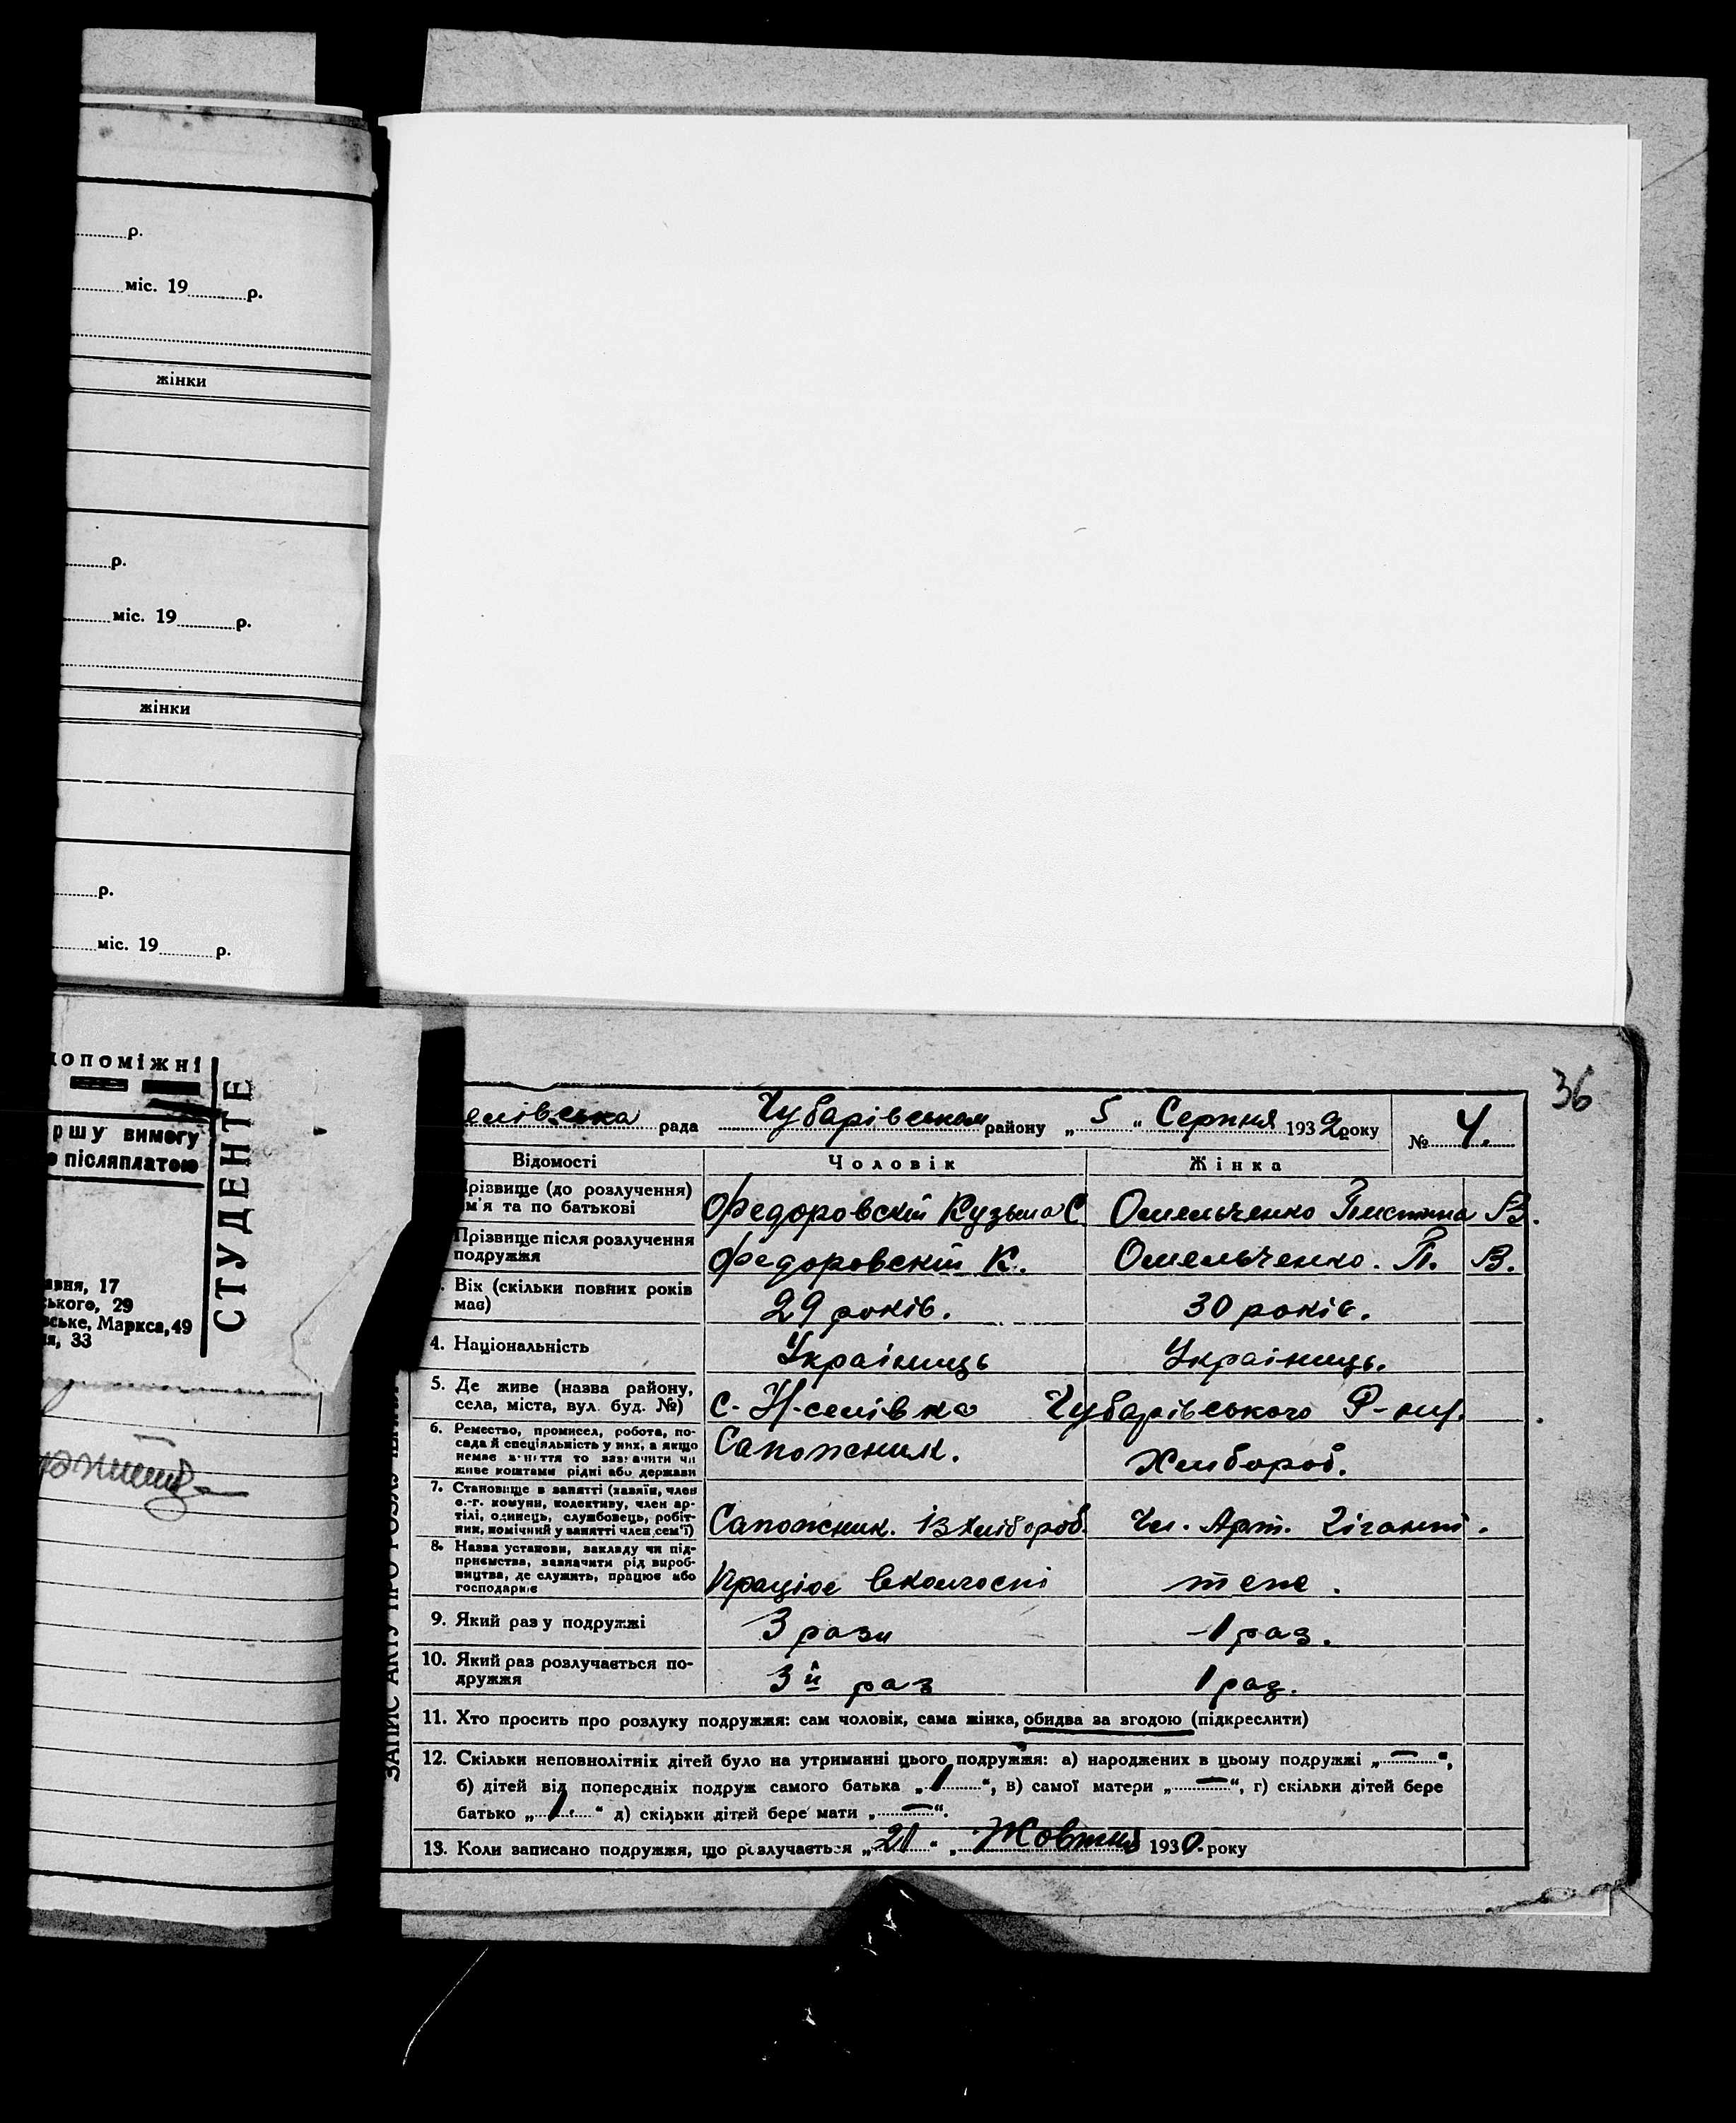 р.
міс. 19 р.
жінки
р.
міс. 19 р.
жінки
р.
міс. 19 р.
допоміжні
ршу вимогу
післяплатою
СТУДЕНТЕ
авня, 17
ського, 29
вське, Маркса, 49
ня, 33
36
елівська рада Чубарівський району „5“ Серпня 1932 року № 4.
Відомості Чоловік Жінка
Прізвище (до розлучення) Федоровскій Кузьма С Омельченко В.
ім'я та по батькові
Прізвище після розлучення Федоровскій К. Омельченко. П. В.
подружжя
Вік (скільки повних років 29 років. 30 років.
має)
4. Національність Україниць Україниць.
5. Де живе (назва району, с. Н-селівка Чубарівського Р-ну.
села, міста, вул. буд. №)
6. Ремество, промисел, робота, по- Сапожник. Хлибороб.
сада й спеціяльність у них, а якщо
немає заняття то зазначити чи
живе коштами рідні або держави
7. Становище в занятті (хазяїн, член Сапожник. і Хлибороб. Чл. Арт. Гігант.
с.-г. комуни, колективу, член ар-
тілі, одинець, службовець, робіт-
ник, помічний у занятті член сем'ї)
8. Назва установи, закладу чи під- Працює в колгоспі теже.
приємства, зазначити рід вироб-
ництва, де служить, працює або
господарює
9. Який раз у подружжі 3 рази 1 раз.
10. Який раз розлучається по- 3й раз 1 раз.
дружжя
11. Хто просить про розлуку подружжя: сам чоловік, сама жінка, обидва за згодою (підкреслити)
12. Скільки неповнолітніх дітей було на утриманні цього подружжя: а) народжених в цьому подружжі „—“,
б) дітей від попередніх подруж самого батька „1“, в) самої матери „—“, г) скільки дітей бере
батько „1.“ д) скільки дітей бере мати „—“.
13. Коли записано подружжя, що розлучається „21“ „Жовтня 1930 року
ЗАПИС АКТУ ПРО РОЗЛУЧЕННЯ